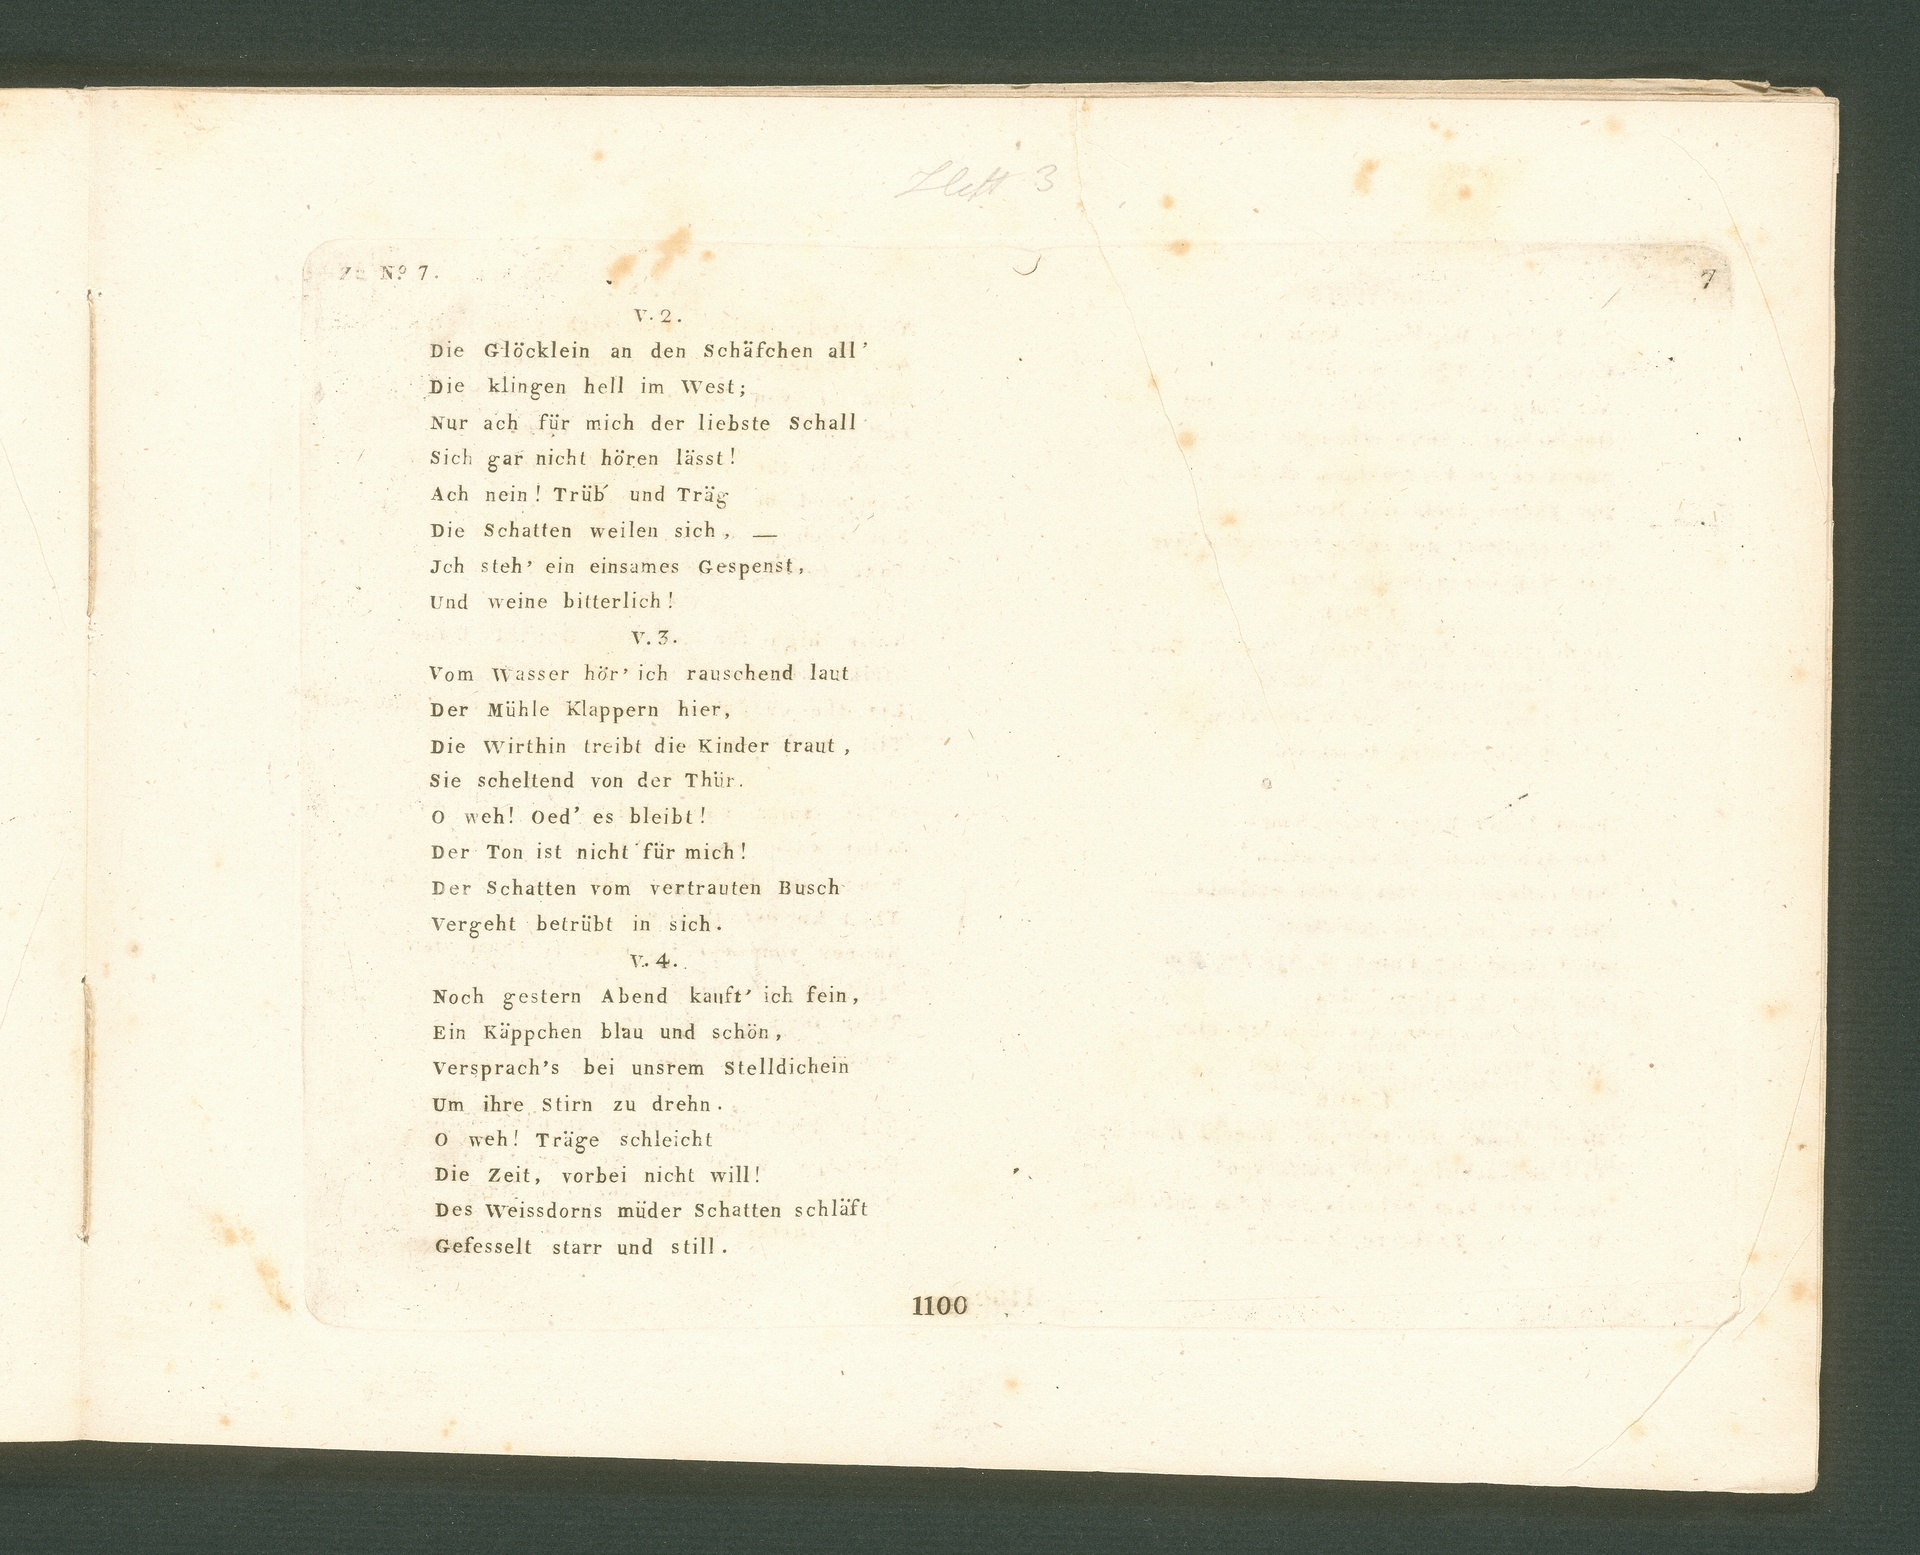 Heft 3
Zu Nº 7.
7
V. 2.
Die Glöcklein an den Schäfchen all'
Die klingen hell im West;
Nur ach für mich der liebste Schall
Sich gar nicht hören lässt!
Ach nein! Trüb' und Träg
Die Schatten weilen sich, —
Jch steh' ein einsames Gespenst,
Und weine bitterlich!
V. 3.
Vom Wasser hör' ich rauschend laut
Der Mühle Klappern hier,
Die Wirthin treibt die Kinder traut,
Sie scheltend von der Thür.
O weh! Oed' es bleibt!
Der Ton ist nicht für mich!
Der Schatten vom vertrauten Busch
Vergeht betrübt in sich.
V. 4.
Noch gestern Abend kauft' ich fein,
Ein Käppchen blau und schön,
Versprach's bei unsrem Stelldichein
Um ihre Stirn zu drehn.
O weh! Träge schleicht
Die Zeit, vorbei nicht will!
Des Weissdorns müder Schatten schläft
Gefesselt starr und still.
1100